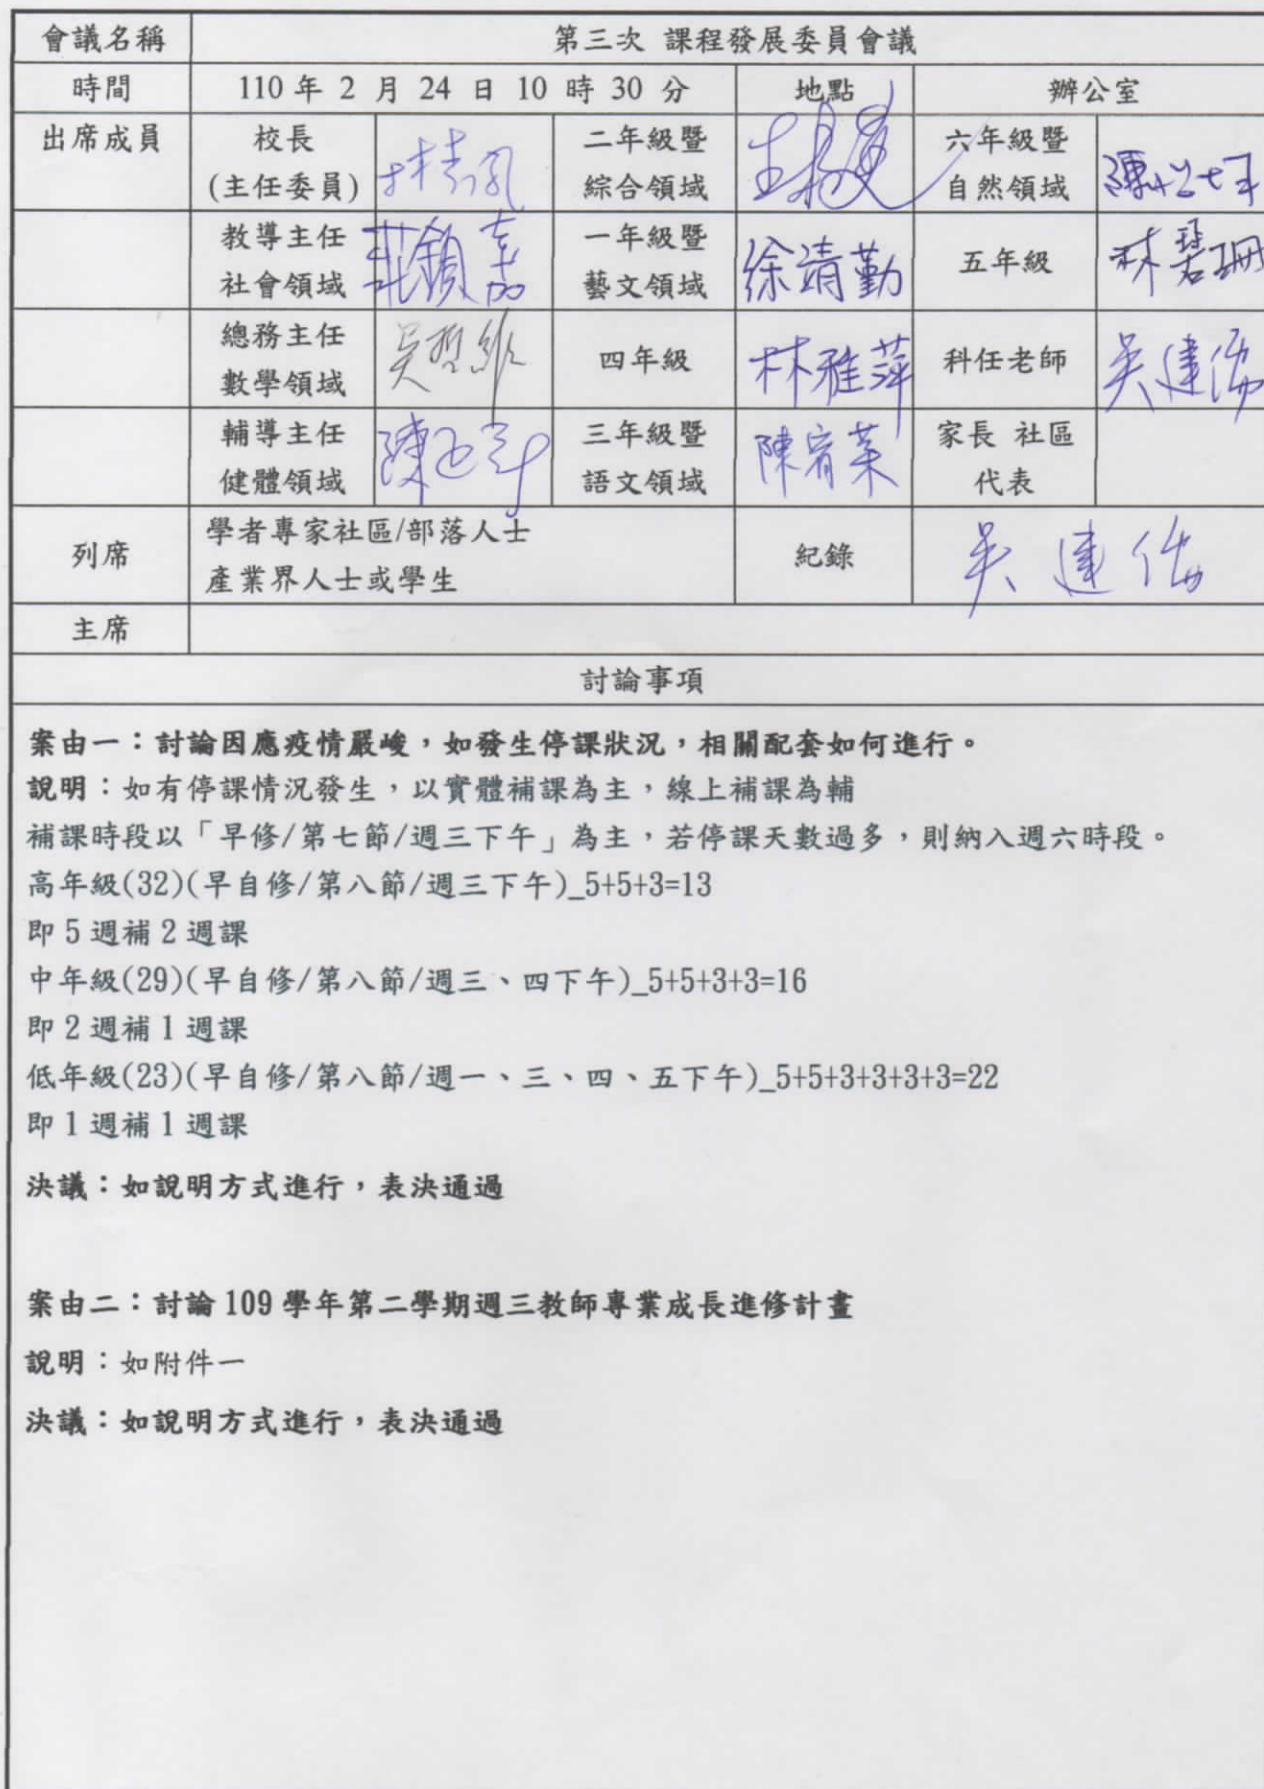 會議名稱 第三次 課程發展委員會議
時間 110 年 2 月 24 日 10 時 30 分 地點 辦公室
出席成員 校長 二年級暨 六年級暨
(主任委員) 綜合領域 自然領域
教導主任 一年級暨 五年級
社會領域 藝文領域 徐靖勤 林碧珊
總務主任 四年級 林雅萍 科任老師
數學領域 吳哲維
輔導主任 三年級暨 家長 社區
健體領域 語文領域 陳宥蓁 代表
列席 學者專家社區/部落人士 紀錄
產業界人士或學生
主席
討論事項
案由一：討論因應疫情嚴峻，如發生停課狀況，相關配套如何進行。
說明：如有停課情況發生，以實體補課為主，線上補課為輔
補課時段以「早修/第七節/週三下午」為主，若停課天數過多，則納入週六時段。
高年級(32)(早自修/第八節/週三下午)_5+5+3=13
即 5 週補 2 週課
中年級(29)(早自修/第八節/週三、四下午)_5+5+3+3=16
即 2 週補 1 週課
低年級(23)(早自修/第八節/週一、三、四、五下午)_5+5+3+3+3+3=22
即 1 週補 1 週課
決議：如說明方式進行，表決通過
案由二：討論 109 學年第二學期週三教師專業成長進修計畫
說明：如附件一
決議：如說明方式進行，表決通過